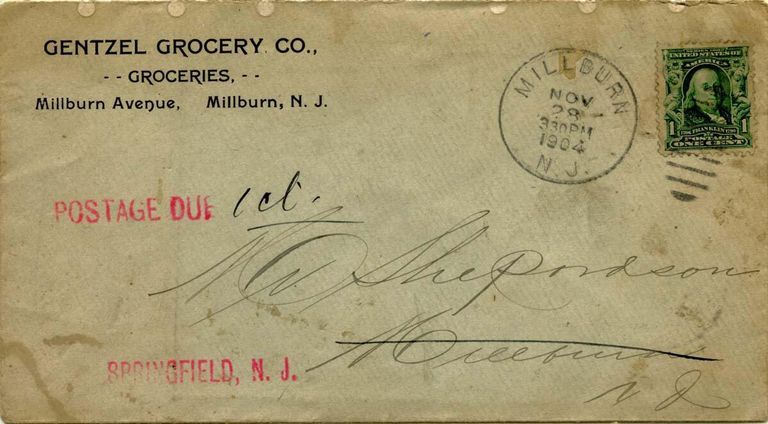 GENTZEL GROCERY CO.,
- - GROCERIES, - -
Millburn Avenue, Millburn, N. J.
MILLBURN
NOV
28
330PM
1904
N. J.
SERIES 1902
UNITED STATES OF
AMERICA
1 1
FRANKLIN
POSTAGE
ONE CENT
POSTAGE DUE 1 ct.
Mr Shepardson
Millburn
N J
SPRINGFIELD, N. J.